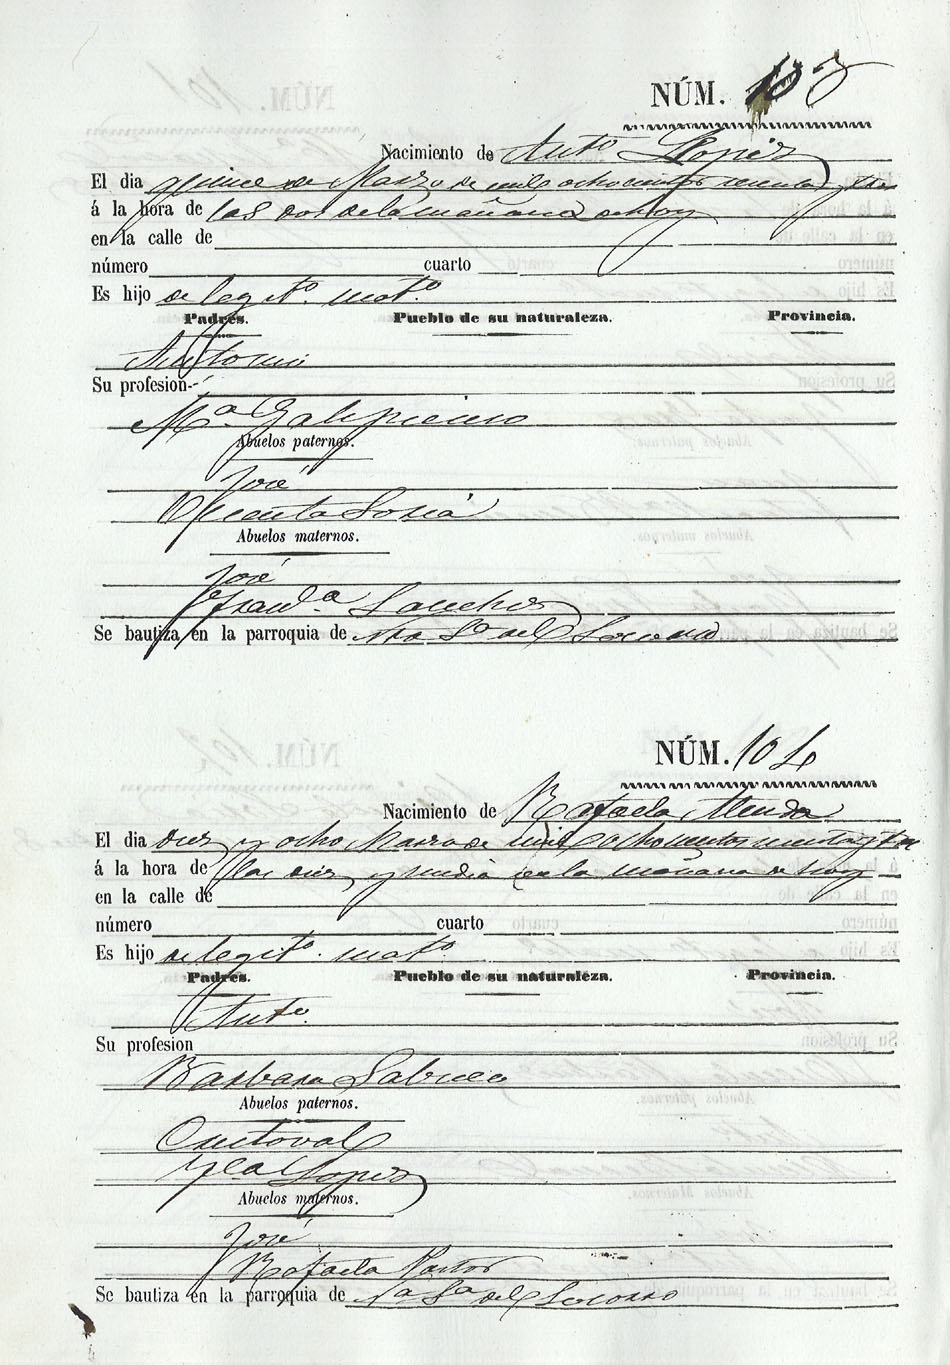 NÚM. 103
Nacimiento de Antº Lopez
El dia quince de Marzo de mil ochocientos y
á la hora de las dos de la mañana de hoy
en la calle de
número cuarto
Es hijo de legitº matº
Padres. Pueblo de su naturaleza. Provincia.
Antonio
Su profesion
Mª
Abuelos paternos.
José
Vicenta
Abuelos maternos.
José
Franᶜª Sanchez
Se bautiza en la parroquia de Ntra Sª del Socorro
NÚM. 104
Nacimiento de Rafaela
El dia diez y ocho Marzo de mil ochocientos
á la hora de las diez y media de la mañana de hoy
en la calle de
número cuarto
Es hijo de legitº matº
Padres. Pueblo de su naturaleza. Provincia.
Antº
Su profesion
Barbara
Abuelos paternos.
Cristoval
Lopez
Abuelos maternos.
José
Rafaela Pastor
Se bautiza en la parroquia de Nª Sª del Socorro